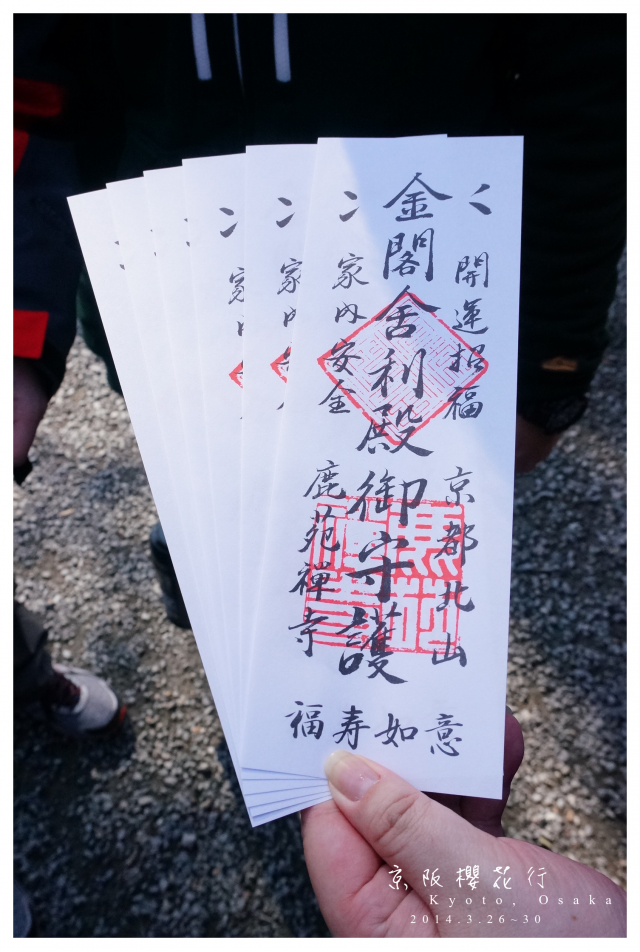 開運招福
京都北山
金閣舎利殿御守護
家内安全
鹿苑禅寺
意如寿福
家内安
家内
京阪櫻花行
Kyoto, Osaka
2014.3.26~30